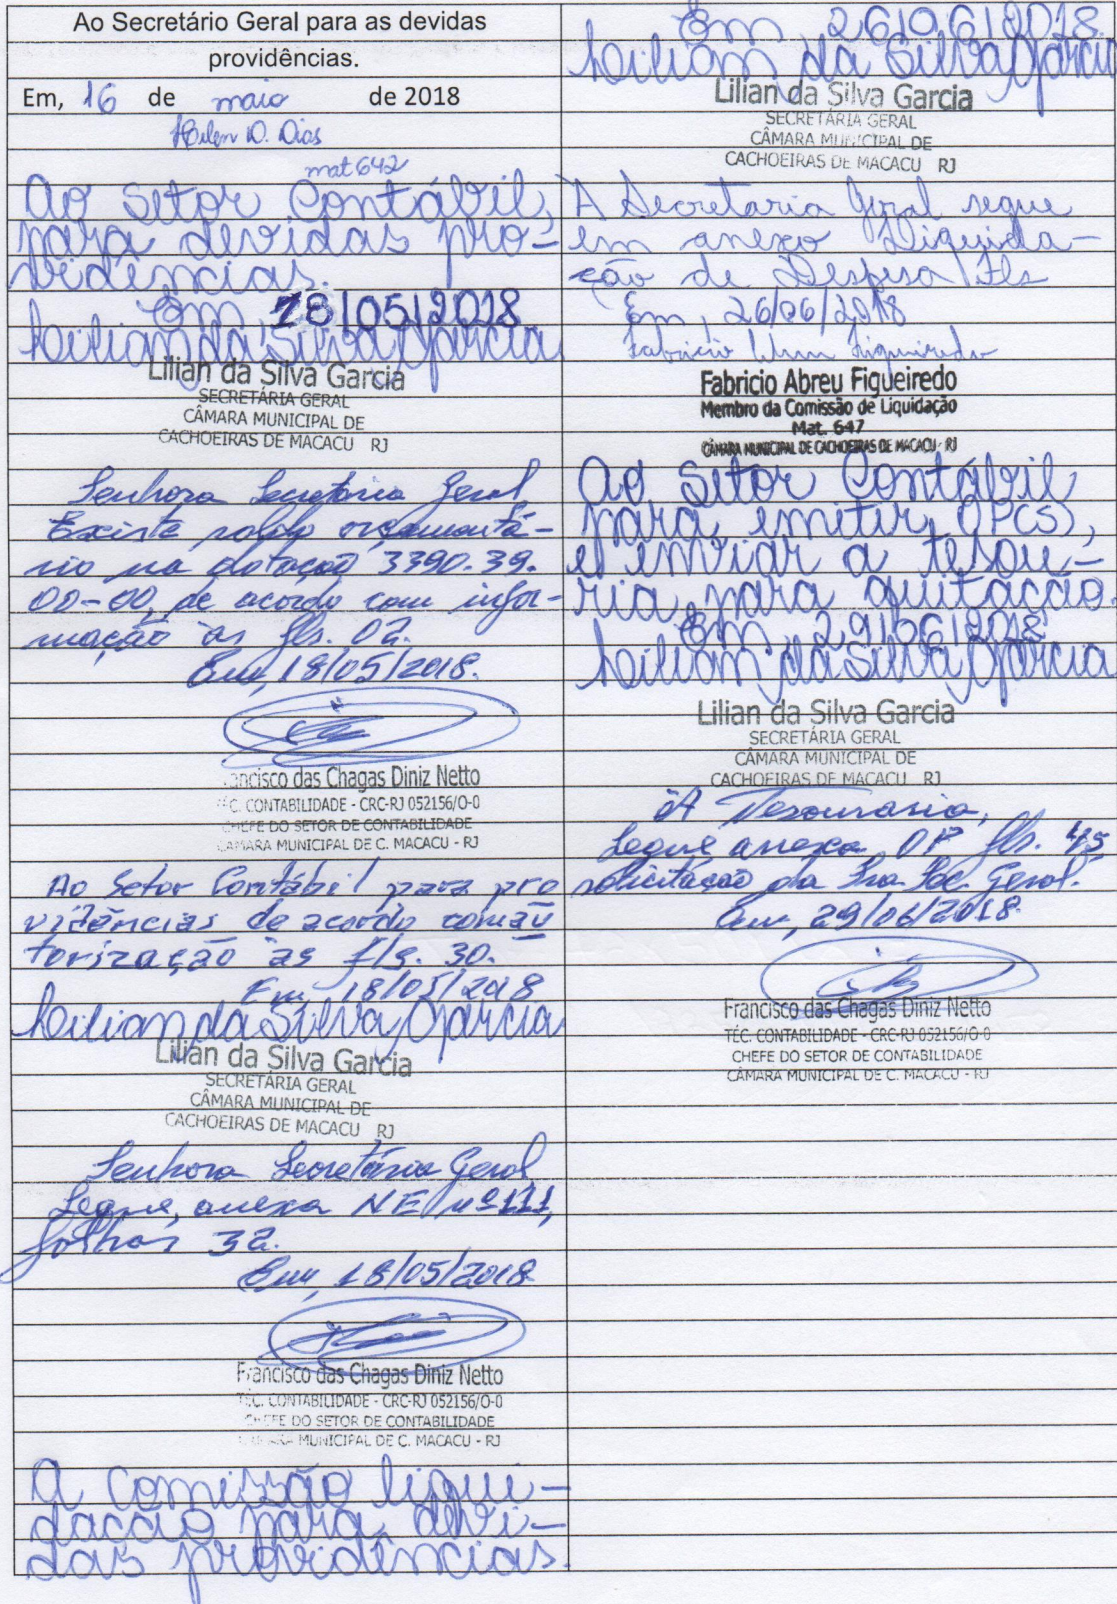 Ao Secretário Geral para as devidas
providências.
Em, 16 de maio de 2018
Helen D. Dias
mat 642
Ao Setor Contábil,
para devidas pro-
vidências.
Em, 18/05/2018
Lilian da Silva Garcia
Lilian da Silva Garcia
SECRETÁRIA GERAL
CÂMARA MUNICIPAL DE
CACHOEIRAS DE MACACU RJ
Senhora Secretária Geral
Existe saldo orçamentá-
rio na dotação 3390.39.
00-00, de acordo com infor-
mação às fls. 02.
Em, 18/05/2018.
Francisco das Chagas Diniz Netto
TÉC. CONTABILIDADE - CRC-RJ 052156/O-0
CHEFE DO SETOR DE CONTABILIDADE
CÂMARA MUNICIPAL DE C. MACACU - RJ
Ao Setor Contábil para pro
vidências de acordo com au
torização às fls. 30.
Em, 18/05/2018
Lilian da Silva Garcia
Lilian da Silva Garcia
SECRETÁRIA GERAL
CÂMARA MUNICIPAL DE
CACHOEIRAS DE MACACU RJ
Senhora Secretária Geral
Segue, anexa NE nº 111,
folhas 32.
Em, 18/05/2018
Francisco das Chagas Diniz Netto
TÉC. CONTABILIDADE - CRC-RJ 052156/O-0
CHEFE DO SETOR DE CONTABILIDADE
CÂMARA MUNICIPAL DE C. MACACU - RJ
A Comissão liqui-
dacão para devi-
das providências.
Em, 26/06/2018.
Lilian da Silva Garcia
Lilian da Silva Garcia
SECRETÁRIA GERAL
CÂMARA MUNICIPAL DE
CACHOEIRAS DE MACACU RJ
A Secretaria Geral segue
em anexo Liquida-
ção de Despesa Fls
Em, 26/06/2018
Fabricio Figueiredo
Fabricio Abreu Figueiredo
Membro da Comissão de Liquidação
Mat. 647
CÂMARA MUNICIPAL DE CACHOEIRAS DE MACACU - RJ
Ao Setor Contábil
para emitir OP(s),
e enviar a tesou-
ria, para quitacão.
Em, 29/06/2018
Lilian da Silva Garcia
Lilian da Silva Garcia
SECRETÁRIA GERAL
CÂMARA MUNICIPAL DE
CACHOEIRAS DE MACACU RJ
À Tesouraria,
Segue anexa OP fls. 45
solicitação da Sra. Sec. Geral.
Em, 29/06/2018.
Francisco das Chagas Diniz Netto
TÉC. CONTABILIDADE - CRC-RJ 052156/O-0
CHEFE DO SETOR DE CONTABILIDADE
CÂMARA MUNICIPAL DE C. MACACU - RJ